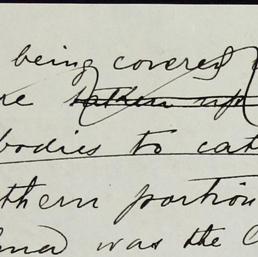 being covered
re taken up
bodies to cat
thern portion
was the C